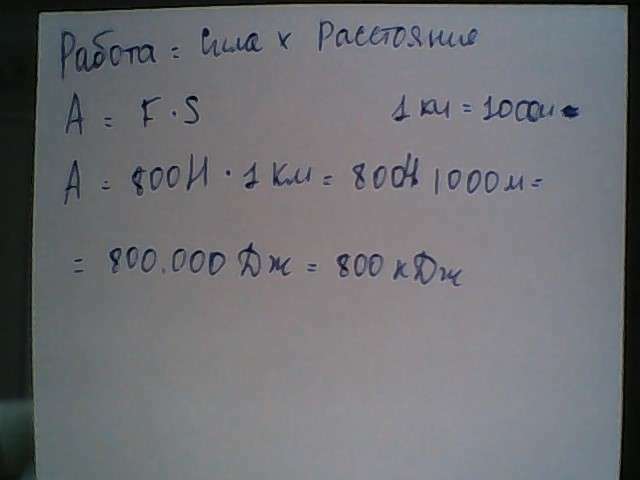 Работа = Сила х Расстояние
А = F · S 1 км = 1000м
А = 800Н · 1 км = 800Н 1000м =
= 800.000 Дж = 800 кДж